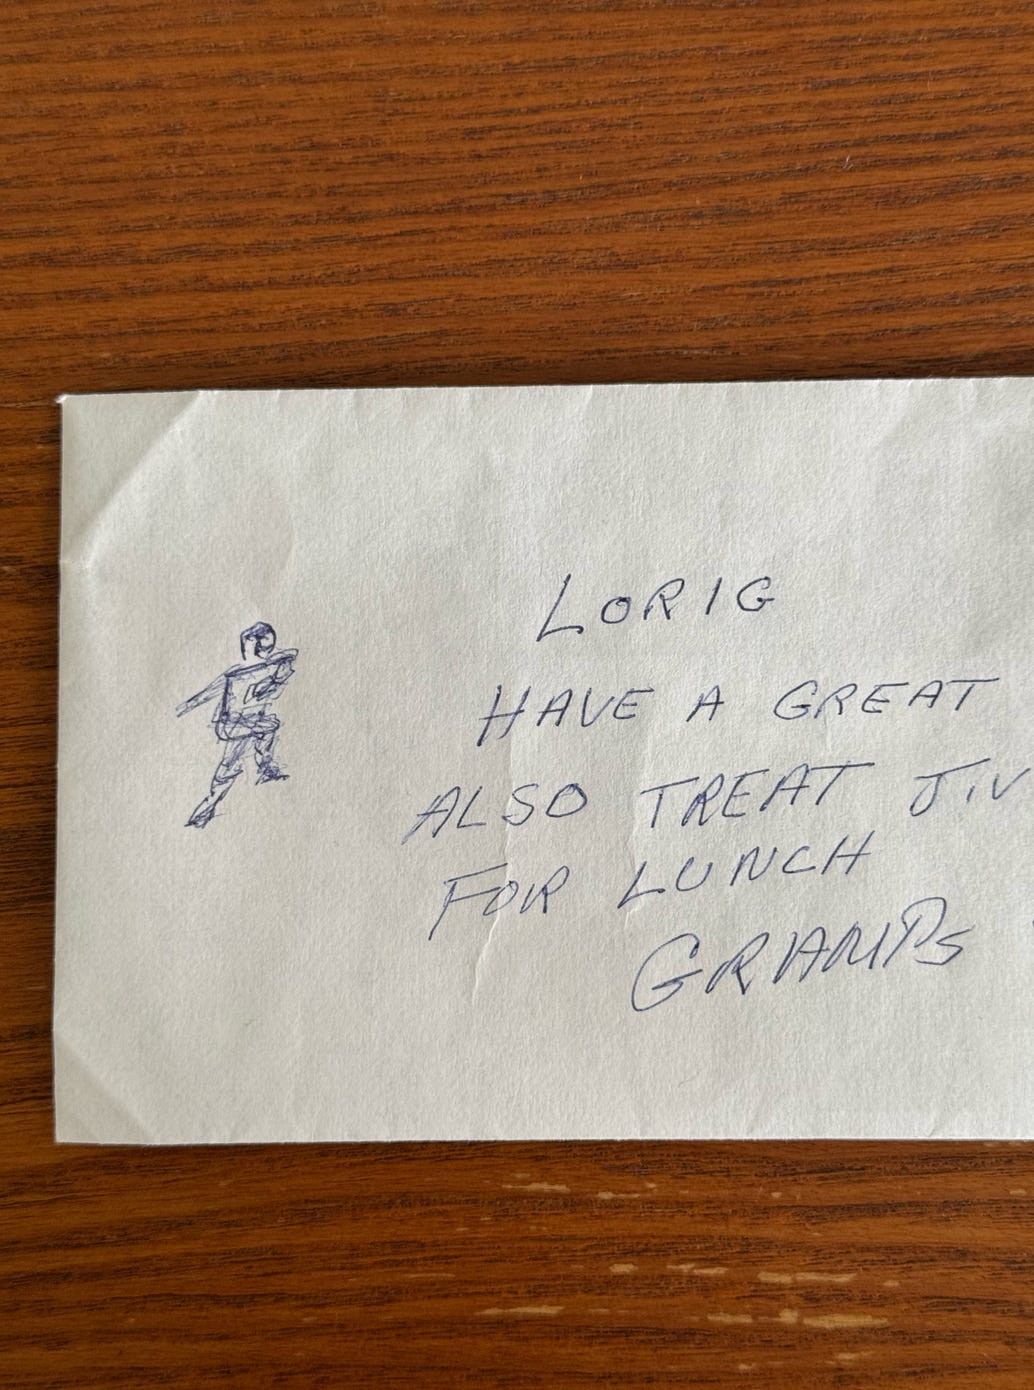 LORIG
HAVE A GREAT
ALSO TREAT
FOR LUNCH
GRAMPS